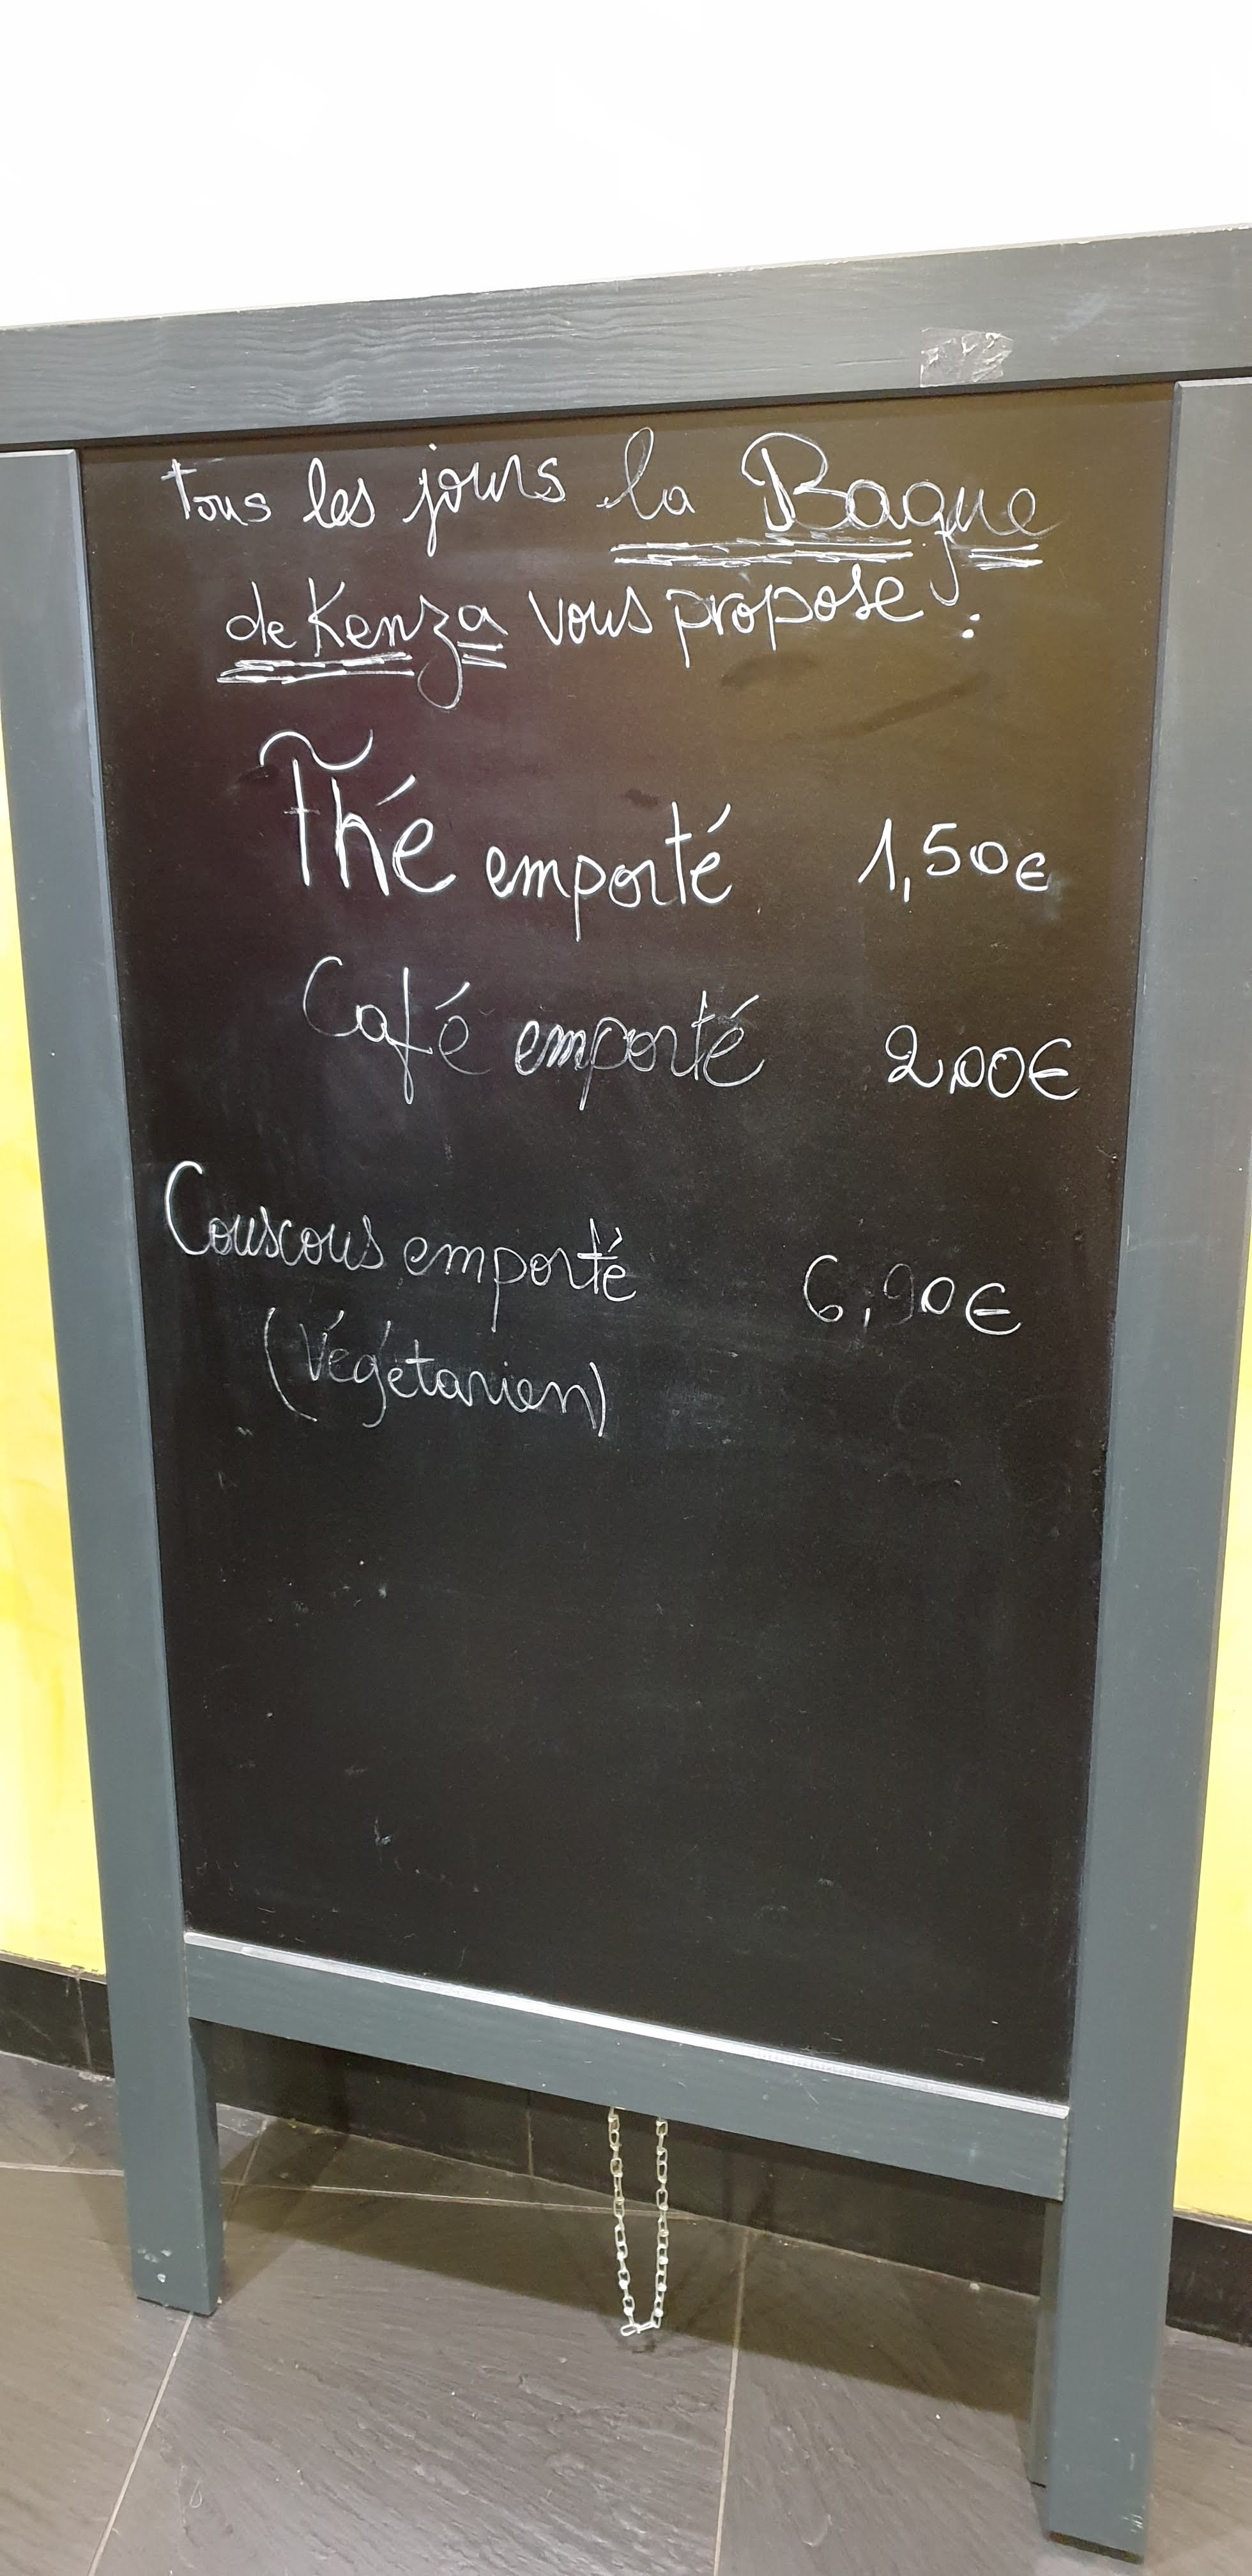 Tous les jours la Bague
de Kenza vous propose :
Thé emporté 1,50€
Café emporté 2,00€
Couscous emporté 6,90€
(Végétarien)